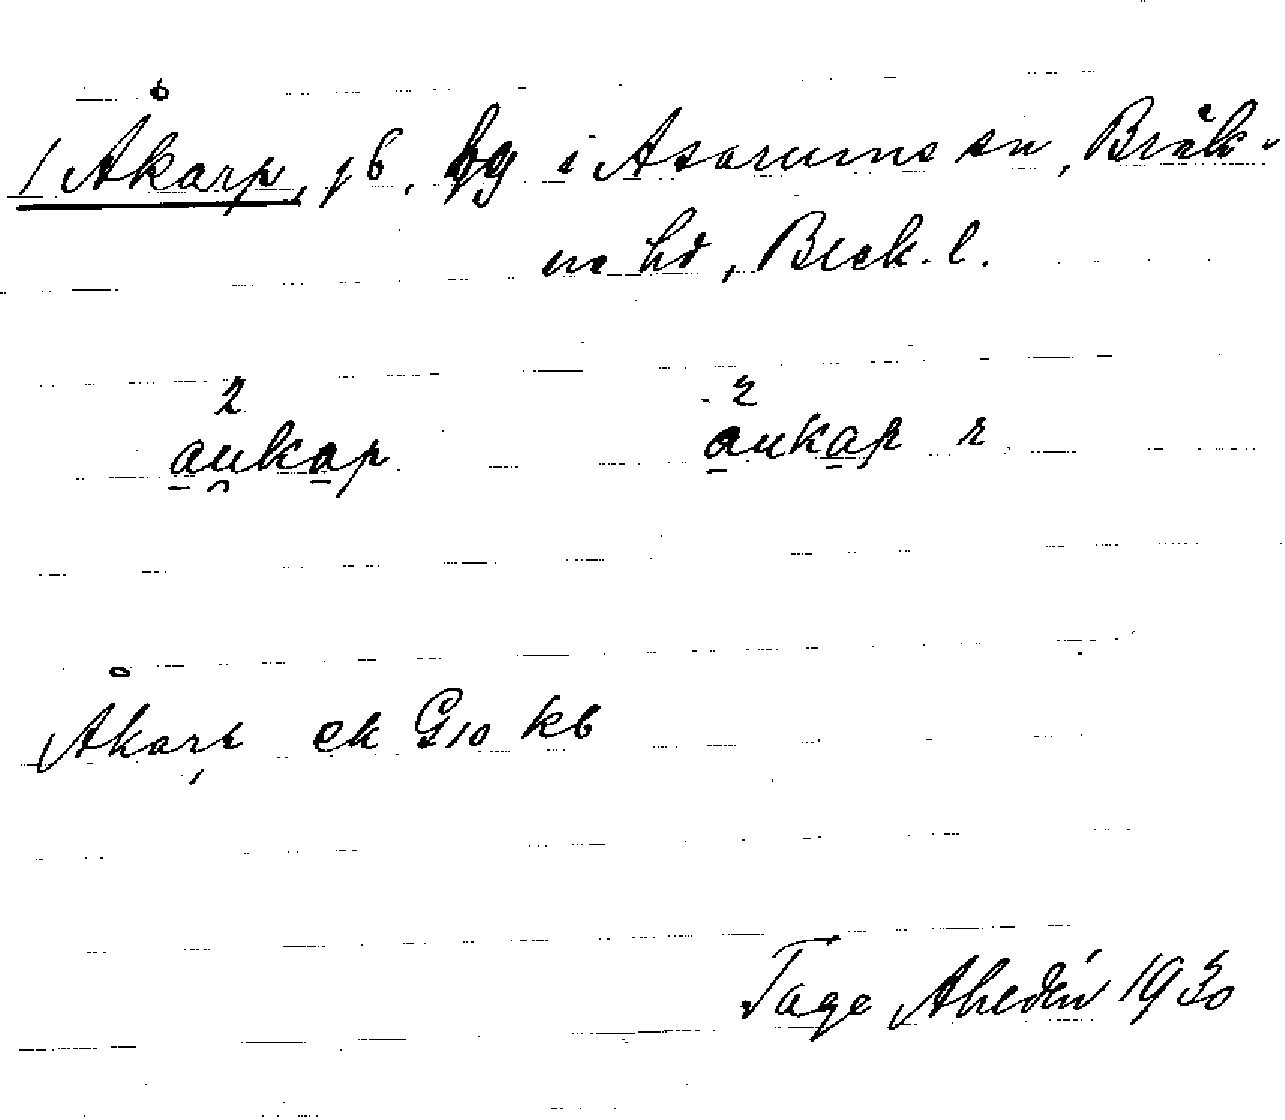 1 Åkarp, jb, by i Asarums sn, Bräk-
ne hd, Blek. l.
2 2
au̯kap aukap r
Åkarp ek G10 kb
Tage Ahldén 1930